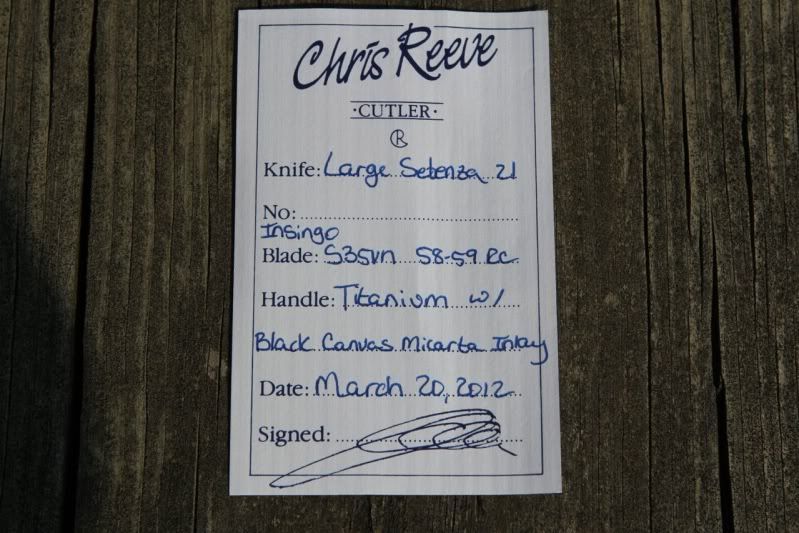 Chris Reeve
·CUTLER·
R
Knife: Large Sebenza 21
No:
Insingo
Blade: S35VN 58-59 RC
Handle: Titanium w/
Black Canvas Micarta Inlay
Date: March 20, 2012
Signed: